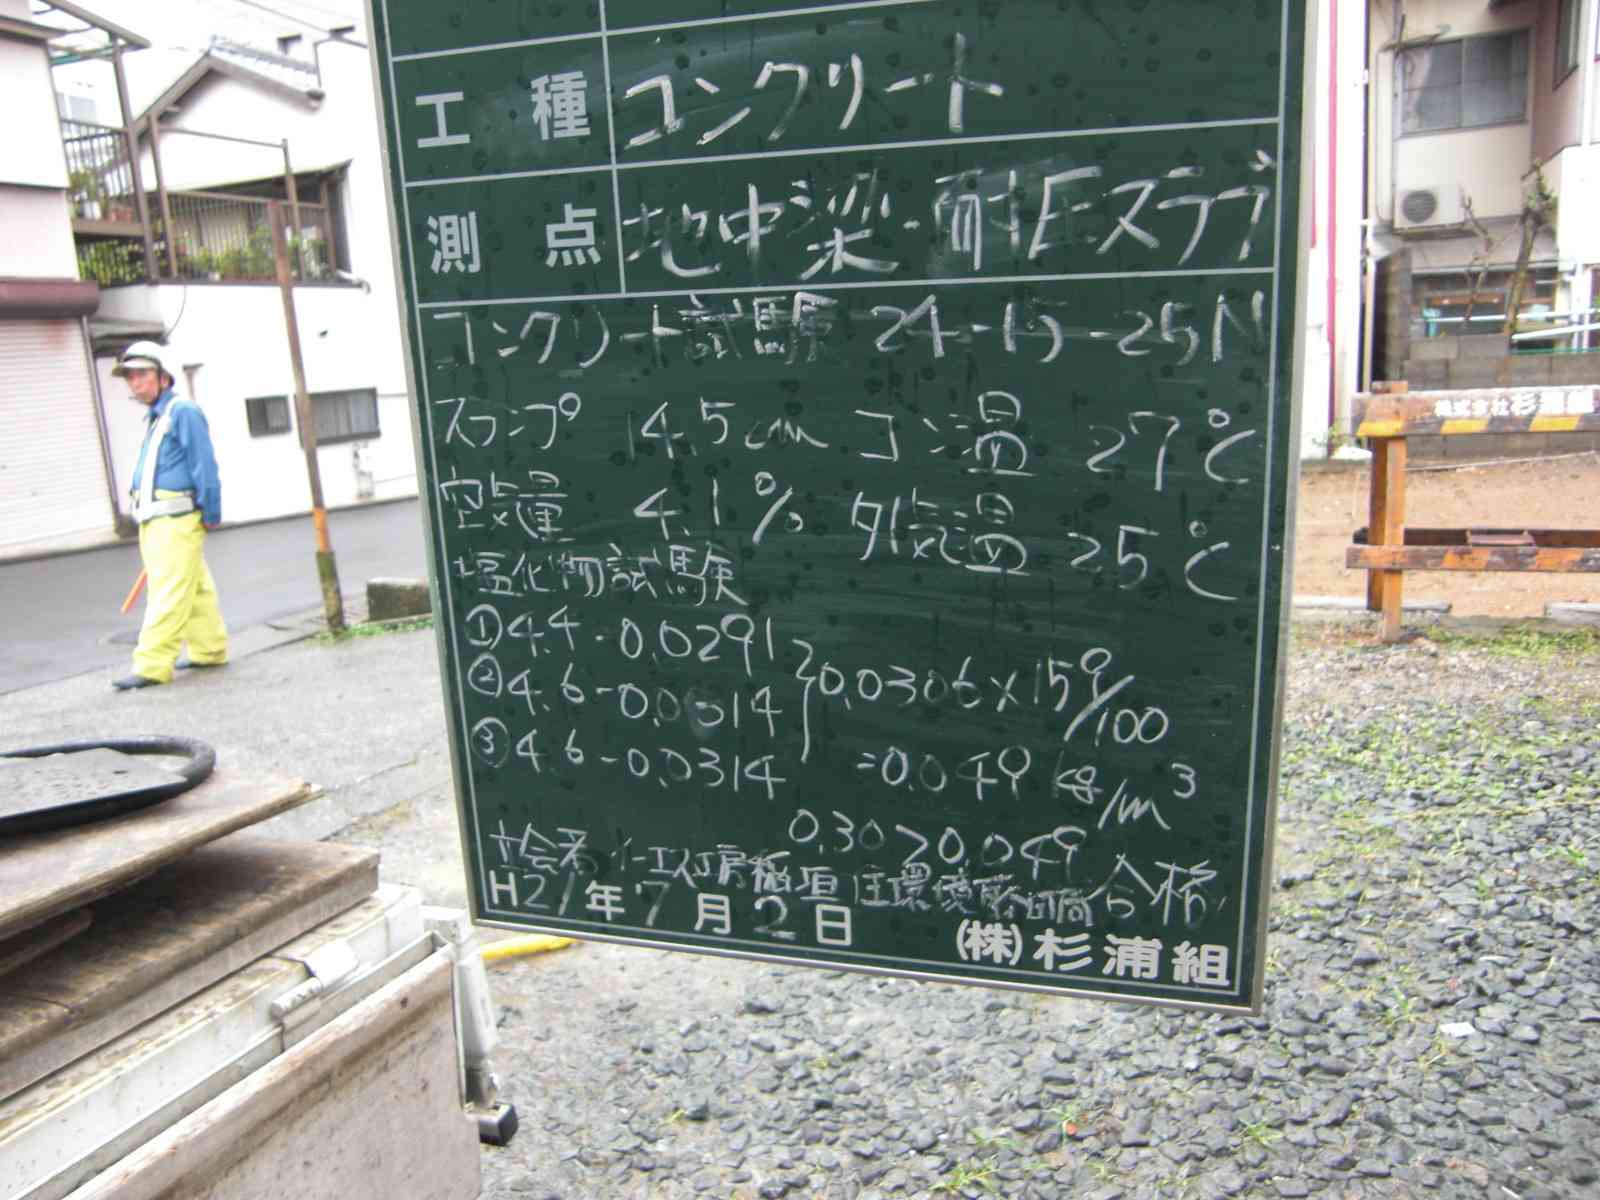 工種 コンクリート
測点 地中梁・耐圧スラブ
コンクリート試験 24-15-25N
スランプ 14.5cm コン温 27℃
空気量 4.1% 外気温 25℃
塩化物試験
①4.4-0.0291
②4.6-0.0314
③4.6-0.0314
0.0306×159/100
=0.049kg/m³
0.30>0.049
立会者 イーエス工房稲垣 住環境 合格
H21年7月2日
(株)杉浦組
株式会社杉浦組